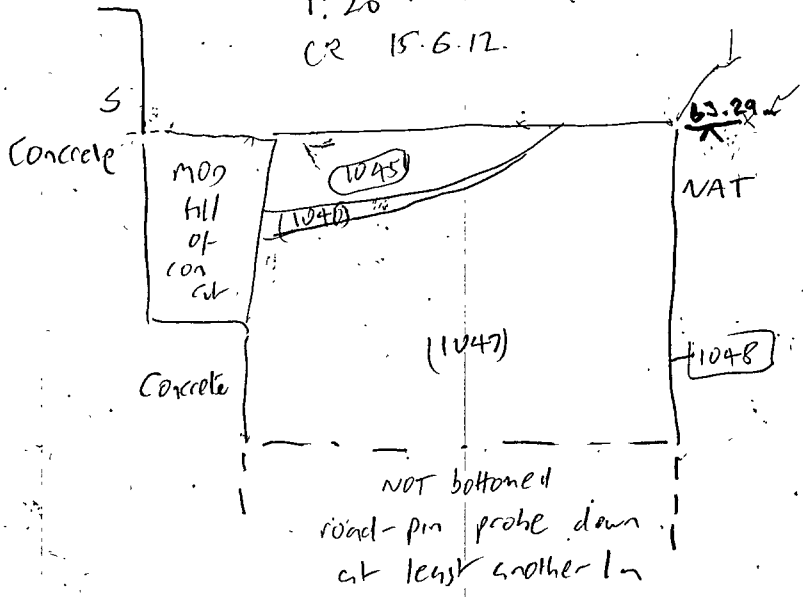 1:20
CR 15.6.12.
S
63.29
Concrete
MOD
fill
of
con
cut
(1045)
(1046)
NAT
(1047)
1048
Concrete
NOT bottomed
road-pin probe down
at least another 1m